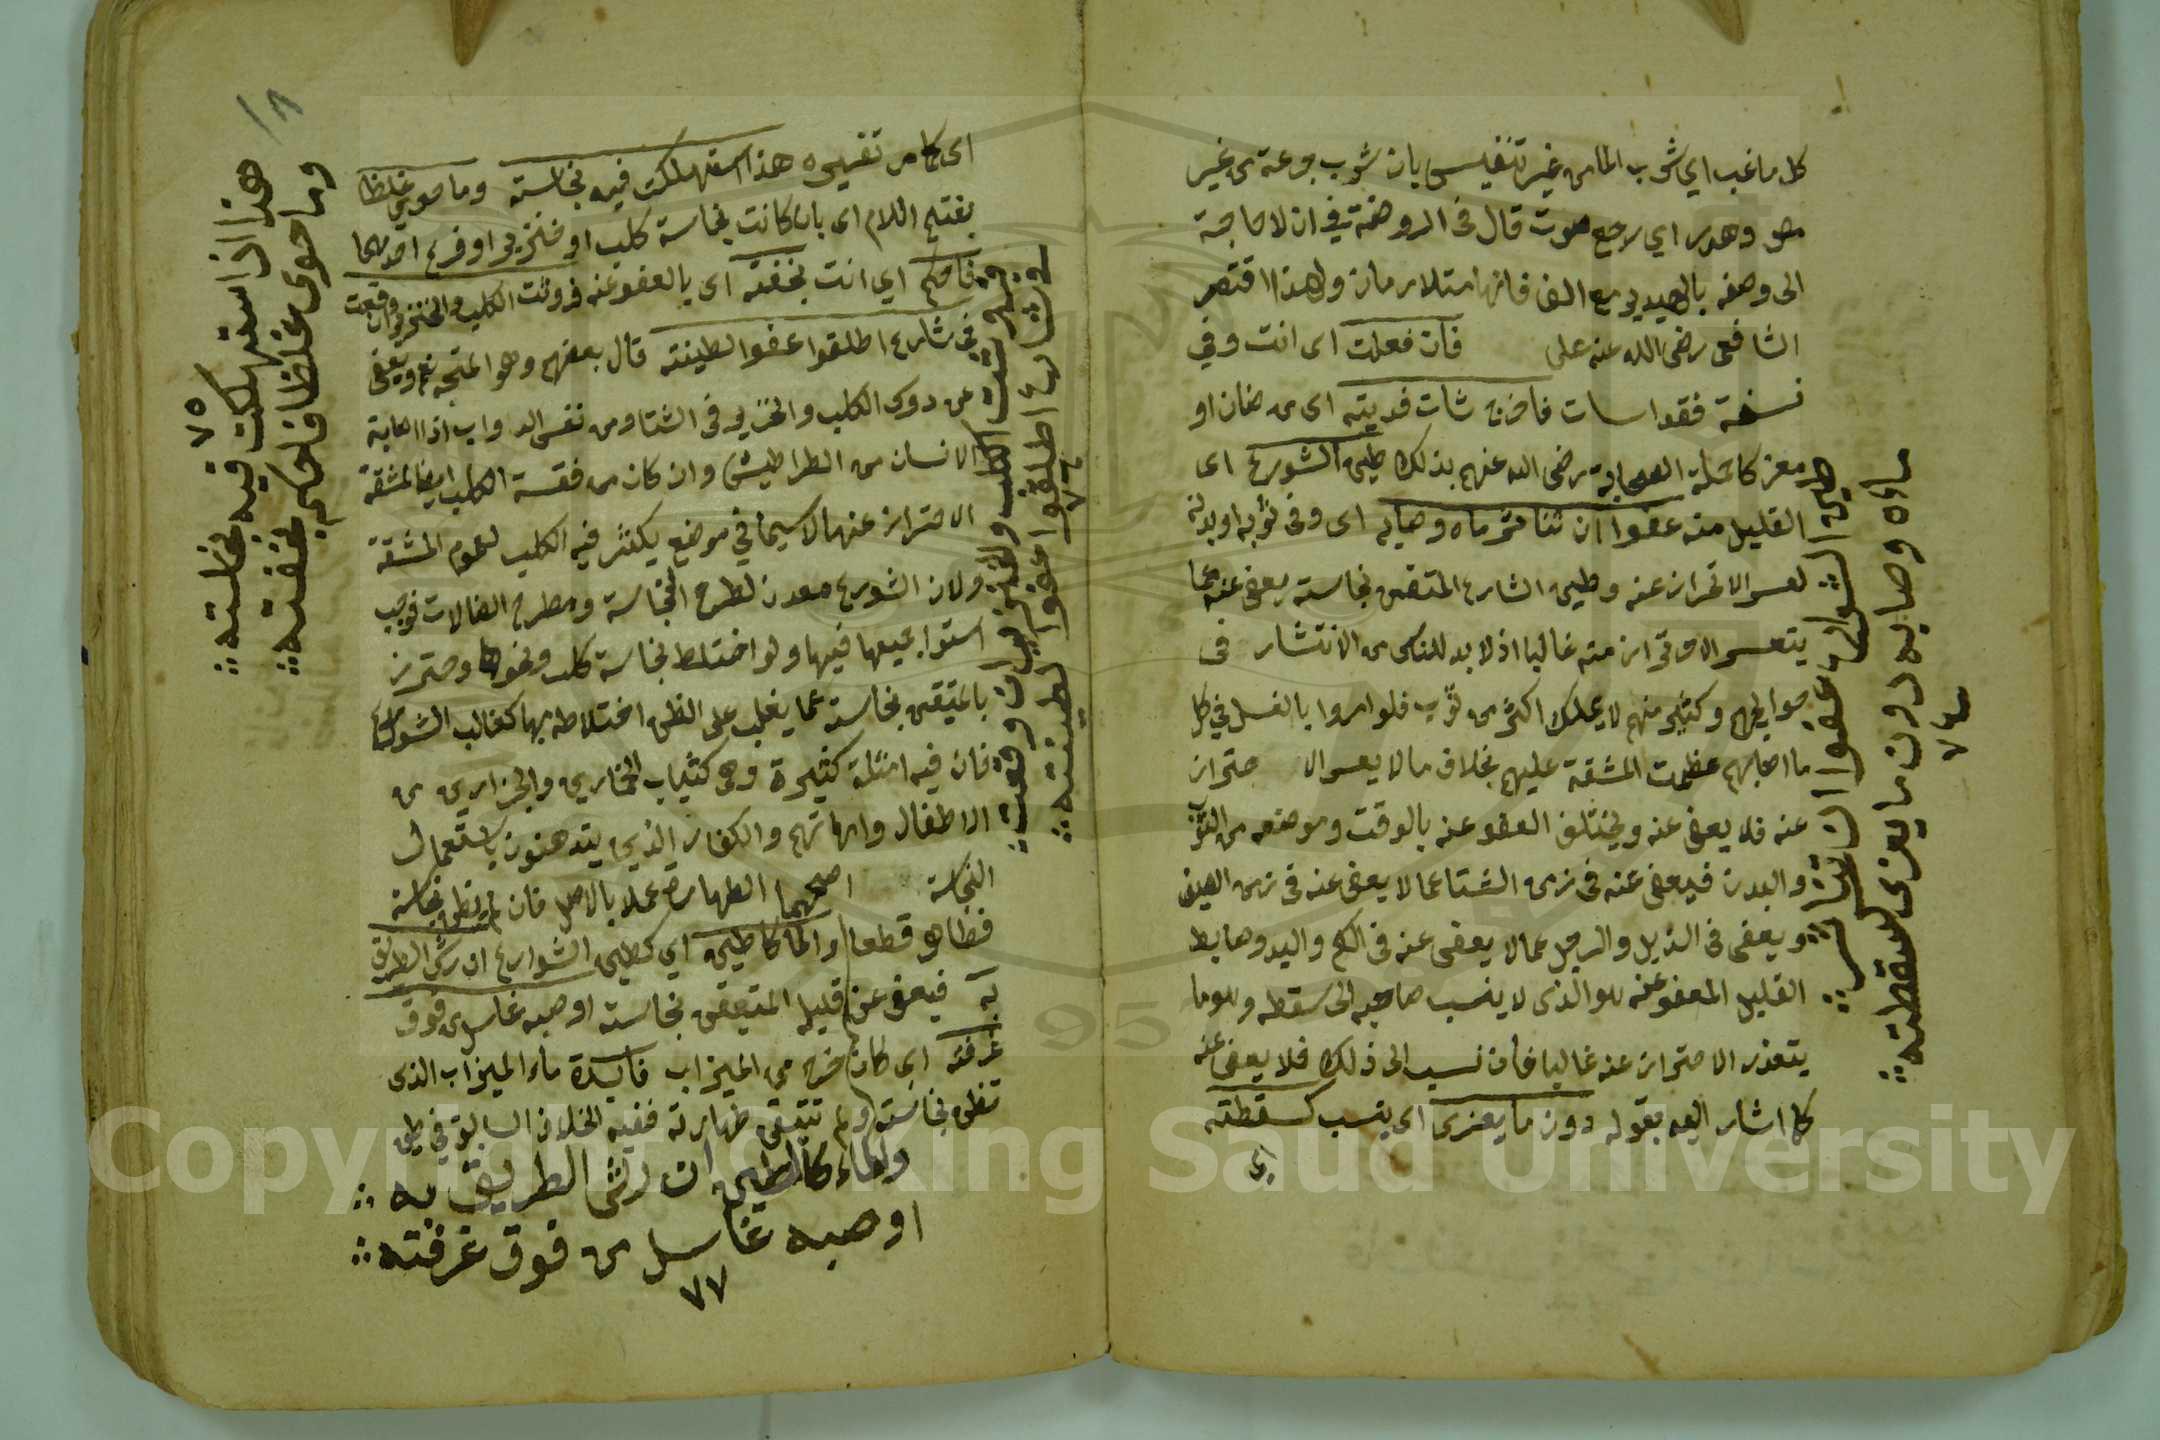 كل ما غب اي شرب الما من غير تنفيس بان شرب جرعة من غير
مص وهدر اي رجع صوت قال في الروضة في ان لا حاجة
الى وصفه بالهدير مع الف فانهما متلازمان ولهذا اقتصر
الشافعي رضى الله عنه على فان فعلت اى انت وفي
نسخة فقد اسات شات فديته اى من ضان او
معز كما حملة الصحابة رضى الله عنهم بذلك طين الشورع اى
القليل منه عفوا ان تناثر ماه وصابه اى وفى ثوبه او بدنه
لعسر الاتحراز عنه وطين الشارع المتقين نجاسته يعفى عنه عما
يتعسر الاحتراز منه غالبا اذ لا بد للناس من الانتشار فى
حوايجهم وكثير منهم لا يملك اكثر من ثوب فلو امروا بالغسل في كل
ما اصابهم عظمت المشقة عليهم بخلاف ما لا يعسر الا حتراز
عنه فلا يعفى عنه ويختلف العفو عنه بالوقت وموضعه من الثو
والبدن فيعفى عنه فى زمن الشتا عما لا يعفى عنه فى زمن الصيف
ويعفى فى الذيل والرجل عما لا يعفى عنه فى الكم واليد وضابط
القليل المعفو عنه هو الذى لا ينسب صاحبه الى سقطه وهو ما
يتعذر الاحتراز عنه غالبا فان نسب الى ذلك فلا يعفى عنه
كما اشار اليه بقوله دون ما يعزى اى ينسب كسقطته
اى
طين الشوارع عفوا ان تناثر
ماه وصابه دون ما يعزى لسقطته
٧٤
اى كا من تغييره هذا استهلكت فيه نجاسته وما حوى غلظا
بفتح اللام اى بان كانت نجاسة كلب او خنزير او فرع احدهما
فاحكم اي انت بخفته اى بالعفو عنه فروثت الكلب والخنزير وان وقعت
في شارع اطلقوا عفوا لطينته قال بعضهم وهو المتجه نعم ويعفى
عن دوى الكلب والخنزير فى الشتا ومن نفس الدواب اذا اصابة
الانسان من الطراطيش وان كان من الكلب ايضا لمشقة
الاحتراز عنها لا سيما في موضع يكثر فيه الكلب لعموم المشقة
ولان الشورع معدن لطرح النجاسة ومطرح الفالات فوجب
استوا جميعها فيها ولو اختلط نجاسة كلب ونحوها وحترز
بالمتيقن نجاسة عما يغلب على الظن اختلاطه بها كغالب الشوارع
فان فيه امثلة كثيرة وهى كثياب الخمارين والجزارين من
الاطفال وامهاتهم والكفار الذين يتدهنون باستعمال
النجاسة اصحهما الطهارة عملا بالاصل فان لم يظن نجاسة
فطاهر قطعا والما كا طين اي كطين الشوارع ان رش الطريق
به فيعفى عن قليل المتيقن نجاسته او صبه غاسل من فوق
غرفته اى كان خرج من الميزاب فايدة ماء الميزاب الذى
تظن نجاسته ولم تتيقن طهارته ففيه الخلاف السابق في طين
والماء كالطين ان رش الطريق به
او صبه غاسل من فوق غرفته
٧٧
هذا اذا استهلكت فيه نجاسته
٧٥
وما حوى غلظا فاحكم بخفته
فروثت الكلب والخنزير ان وقعت
في شارع اطلقوا عفوا لطينته
٧٦
Copyright © King Saud University